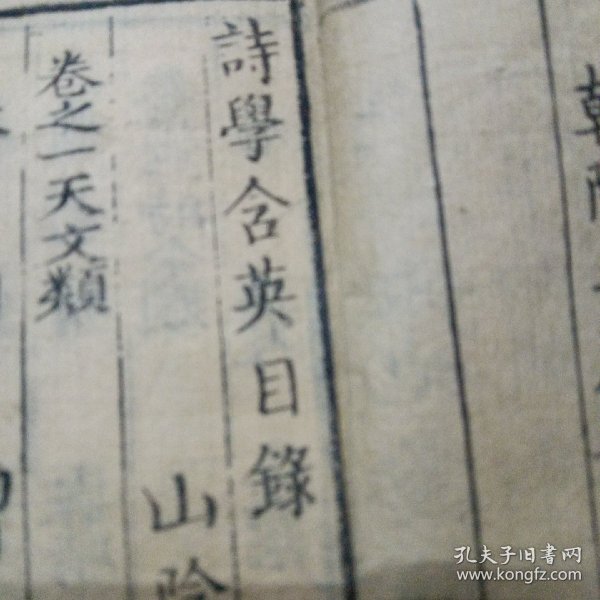 詩學含英目錄
山陰
卷之一天文類
孔夫子旧书网
www.kongfz.com